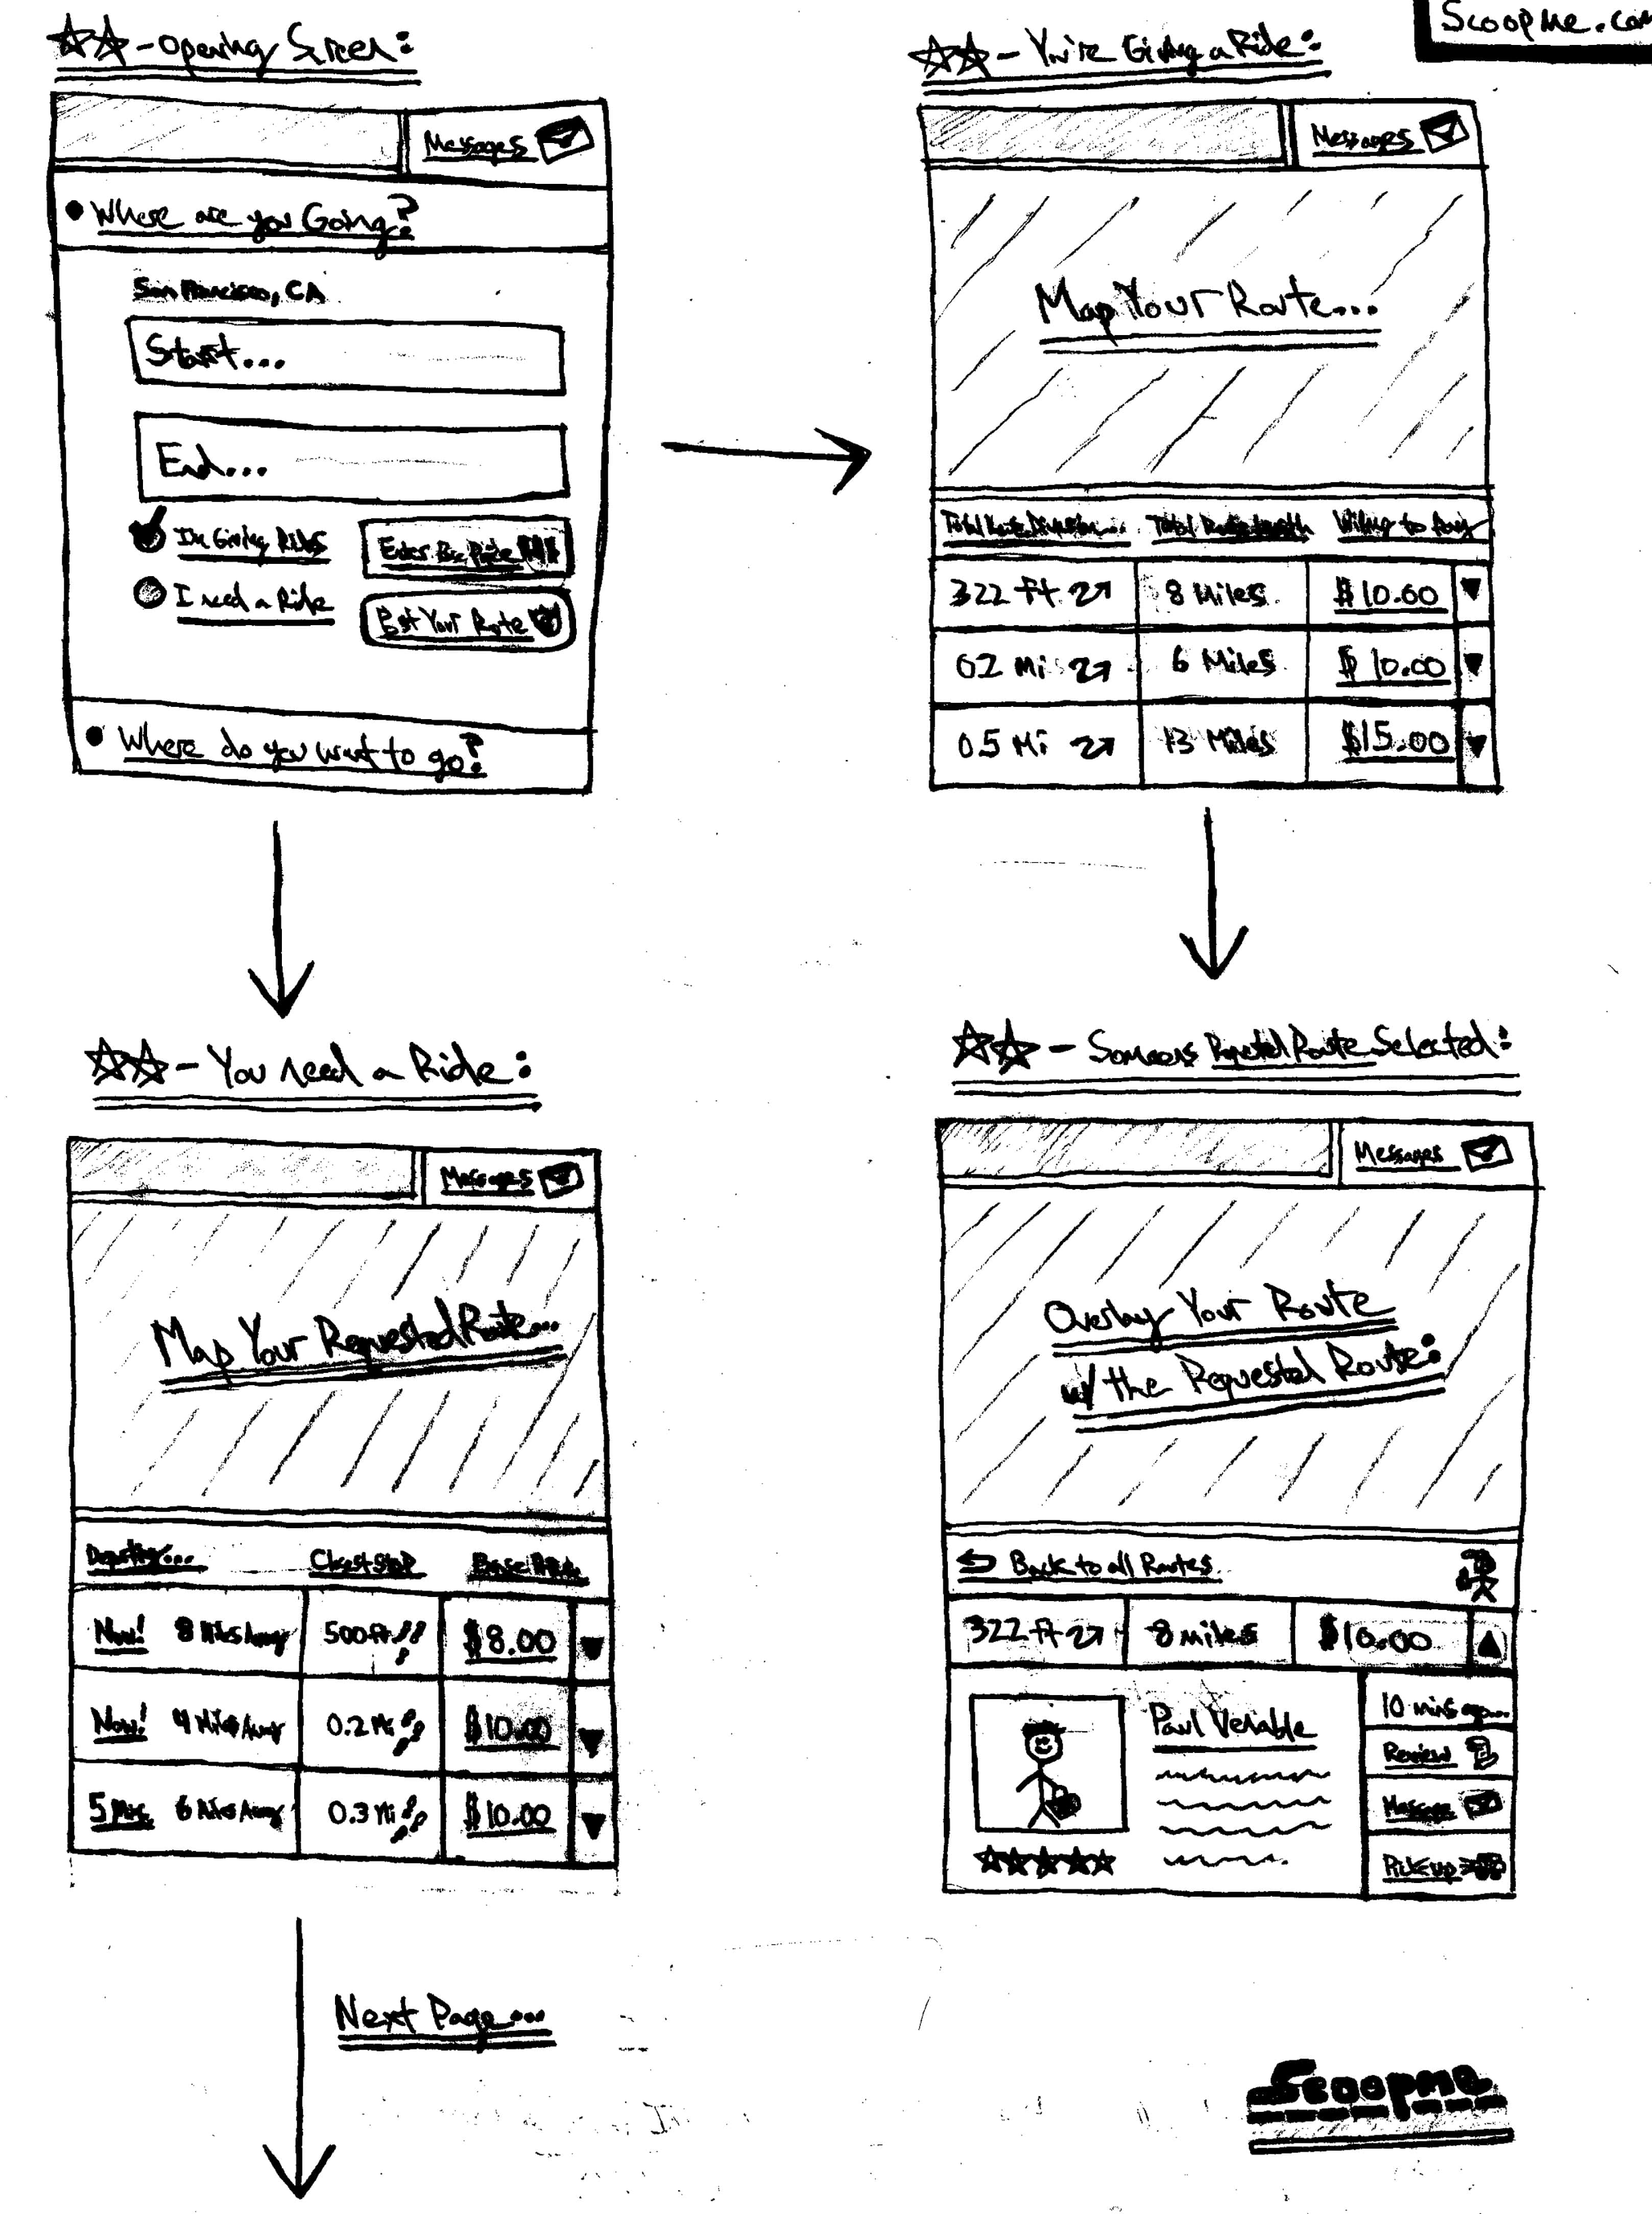 Scoopme.com
- Opening Screen:
Messages
Where are you Going?
San Francisco, CA
Start...
End...
I'm Giving Rides
I need a Ride
Your Route
Where do you want to go?
- You're Giving a Ride:
Messages
Map Your Route...
Total Total Willing to Pay
322 ft 8 Miles $10.00
0.2 Mi 6 Miles $10.00
0.5 Mi 13 Miles $15.00
- You need a Ride:
Messages
Map Your Requested Route...
Departing... Closest Stop
Now! 8 Miles Away 500 ft $8.00
Now! 4 Miles Away 0.2 Mi $10.00
5 Min. 6 Miles Away 0.3 Mi $10.00
Next Page...
- Someones Requested Route Selected:
Messages
Overlay Your Route
w/ the Requested Route:
Back to all Routes
322 ft 8 miles $10.00
Paul Venable
10 mins ago...
Review
Message
Pickup
Scoopme